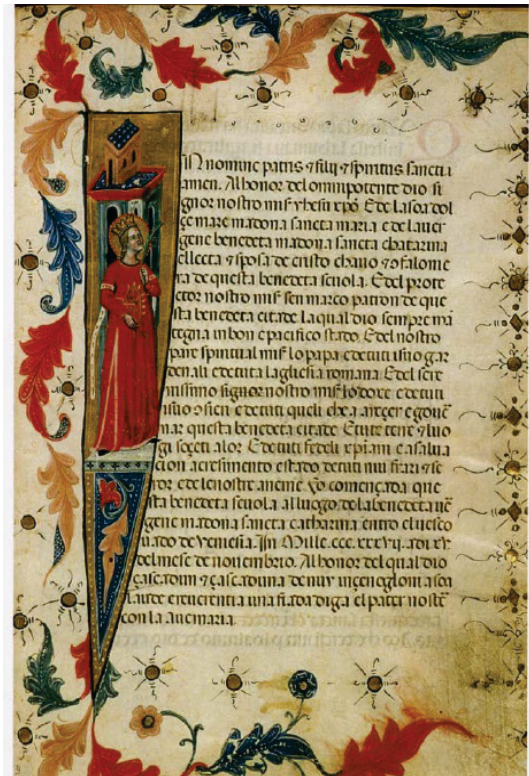 In nomine patris ⁊ filij ⁊ spiritus sancti
amen. Al honor del omnipotente dio si
gnor nostro misser yhesu xpo. E de la soa dol
çe mare madona sancta maria e de la uer
gene beneeta madona sancta chatarina
ellecta ⁊ sposa de cristo
ra de questa beneeta scuola. E del prote
ctor nostro mis sen marco patron de que
sta beneeta citade la qual dio sempre mā
tegna in bon e pacifico stado. E del nostro
pare spiritual mis lo papa e de tuti i suo gar
denali e de tuta la glesia romana. E del sere
nissimo signor nostro mis lo doxe e de tuti
i suo e de tuti queli che a reçer e gouer
nar questa beneeta citade. E tute tere ⁊ luo
gi soçeti a lor. E de tuti fedeli xpiani e a salua
cion acresimento e stado de tuti nui frari ⁊ se
ror e de le nostre aneme. Vo començada que
sta beneeta scuola al luogo de la beneeta uer
gene madona sancta catharina entro el uesco
uado de veniesia. In Mille .ccc. xxxvij. adi xv
del mese de nouembrio. Al honor del qual dio
çascadoun ⁊ çascaduna de nuy
laude e reuerentia una fiada diga el pater nostr
con la auemaria.